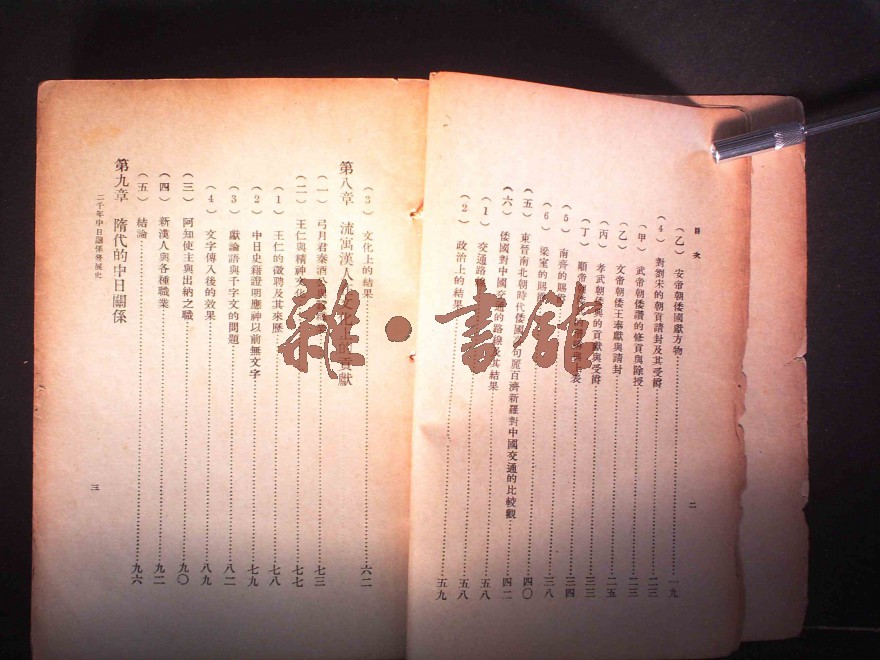 目次
(乙) 安帝朝倭國獻方物……一九
(4) 對劉宋的朝貢請封及其受爵……二三
(甲) 武帝朝倭讚的修貢與除授……二三
(乙) 文帝朝倭王奉獻與請封……二五
(丙) 孝武朝倭興的貢獻與受爵……三三
(丁) 順帝朝倭 上表……三四
(5) 南齊的賜……
(6) 梁室的賜……三八
(五) 東晉南北朝時代倭國 句麗百濟新羅對中國交通的比較觀……四〇
(六) 倭國對中國交通的路線及其結果……四二
(1) 交通路線……五八
(2) 政治上的結果……五八
五九
二
(3) 文化上的結果……六二
第八章 流寓漢人 化上的貢獻
(一) 弓月君秦酒公與……七三
(二) 王仁與精神文化……七七
(1) 王仁的徵聘及其來歷……七八
(2) 中日史籍證明應神以前無文字……七九
(3) 獻論語與千字文的問題……八二
(4) 文字傳入後的效果……八九
(三) 阿知使主與出納之職……九〇
(四) 新漢人與各種職業……九二
(五) 結論……九六
第九章 隋代的中日關係
二千年中日關係發展史
三
雜·書館